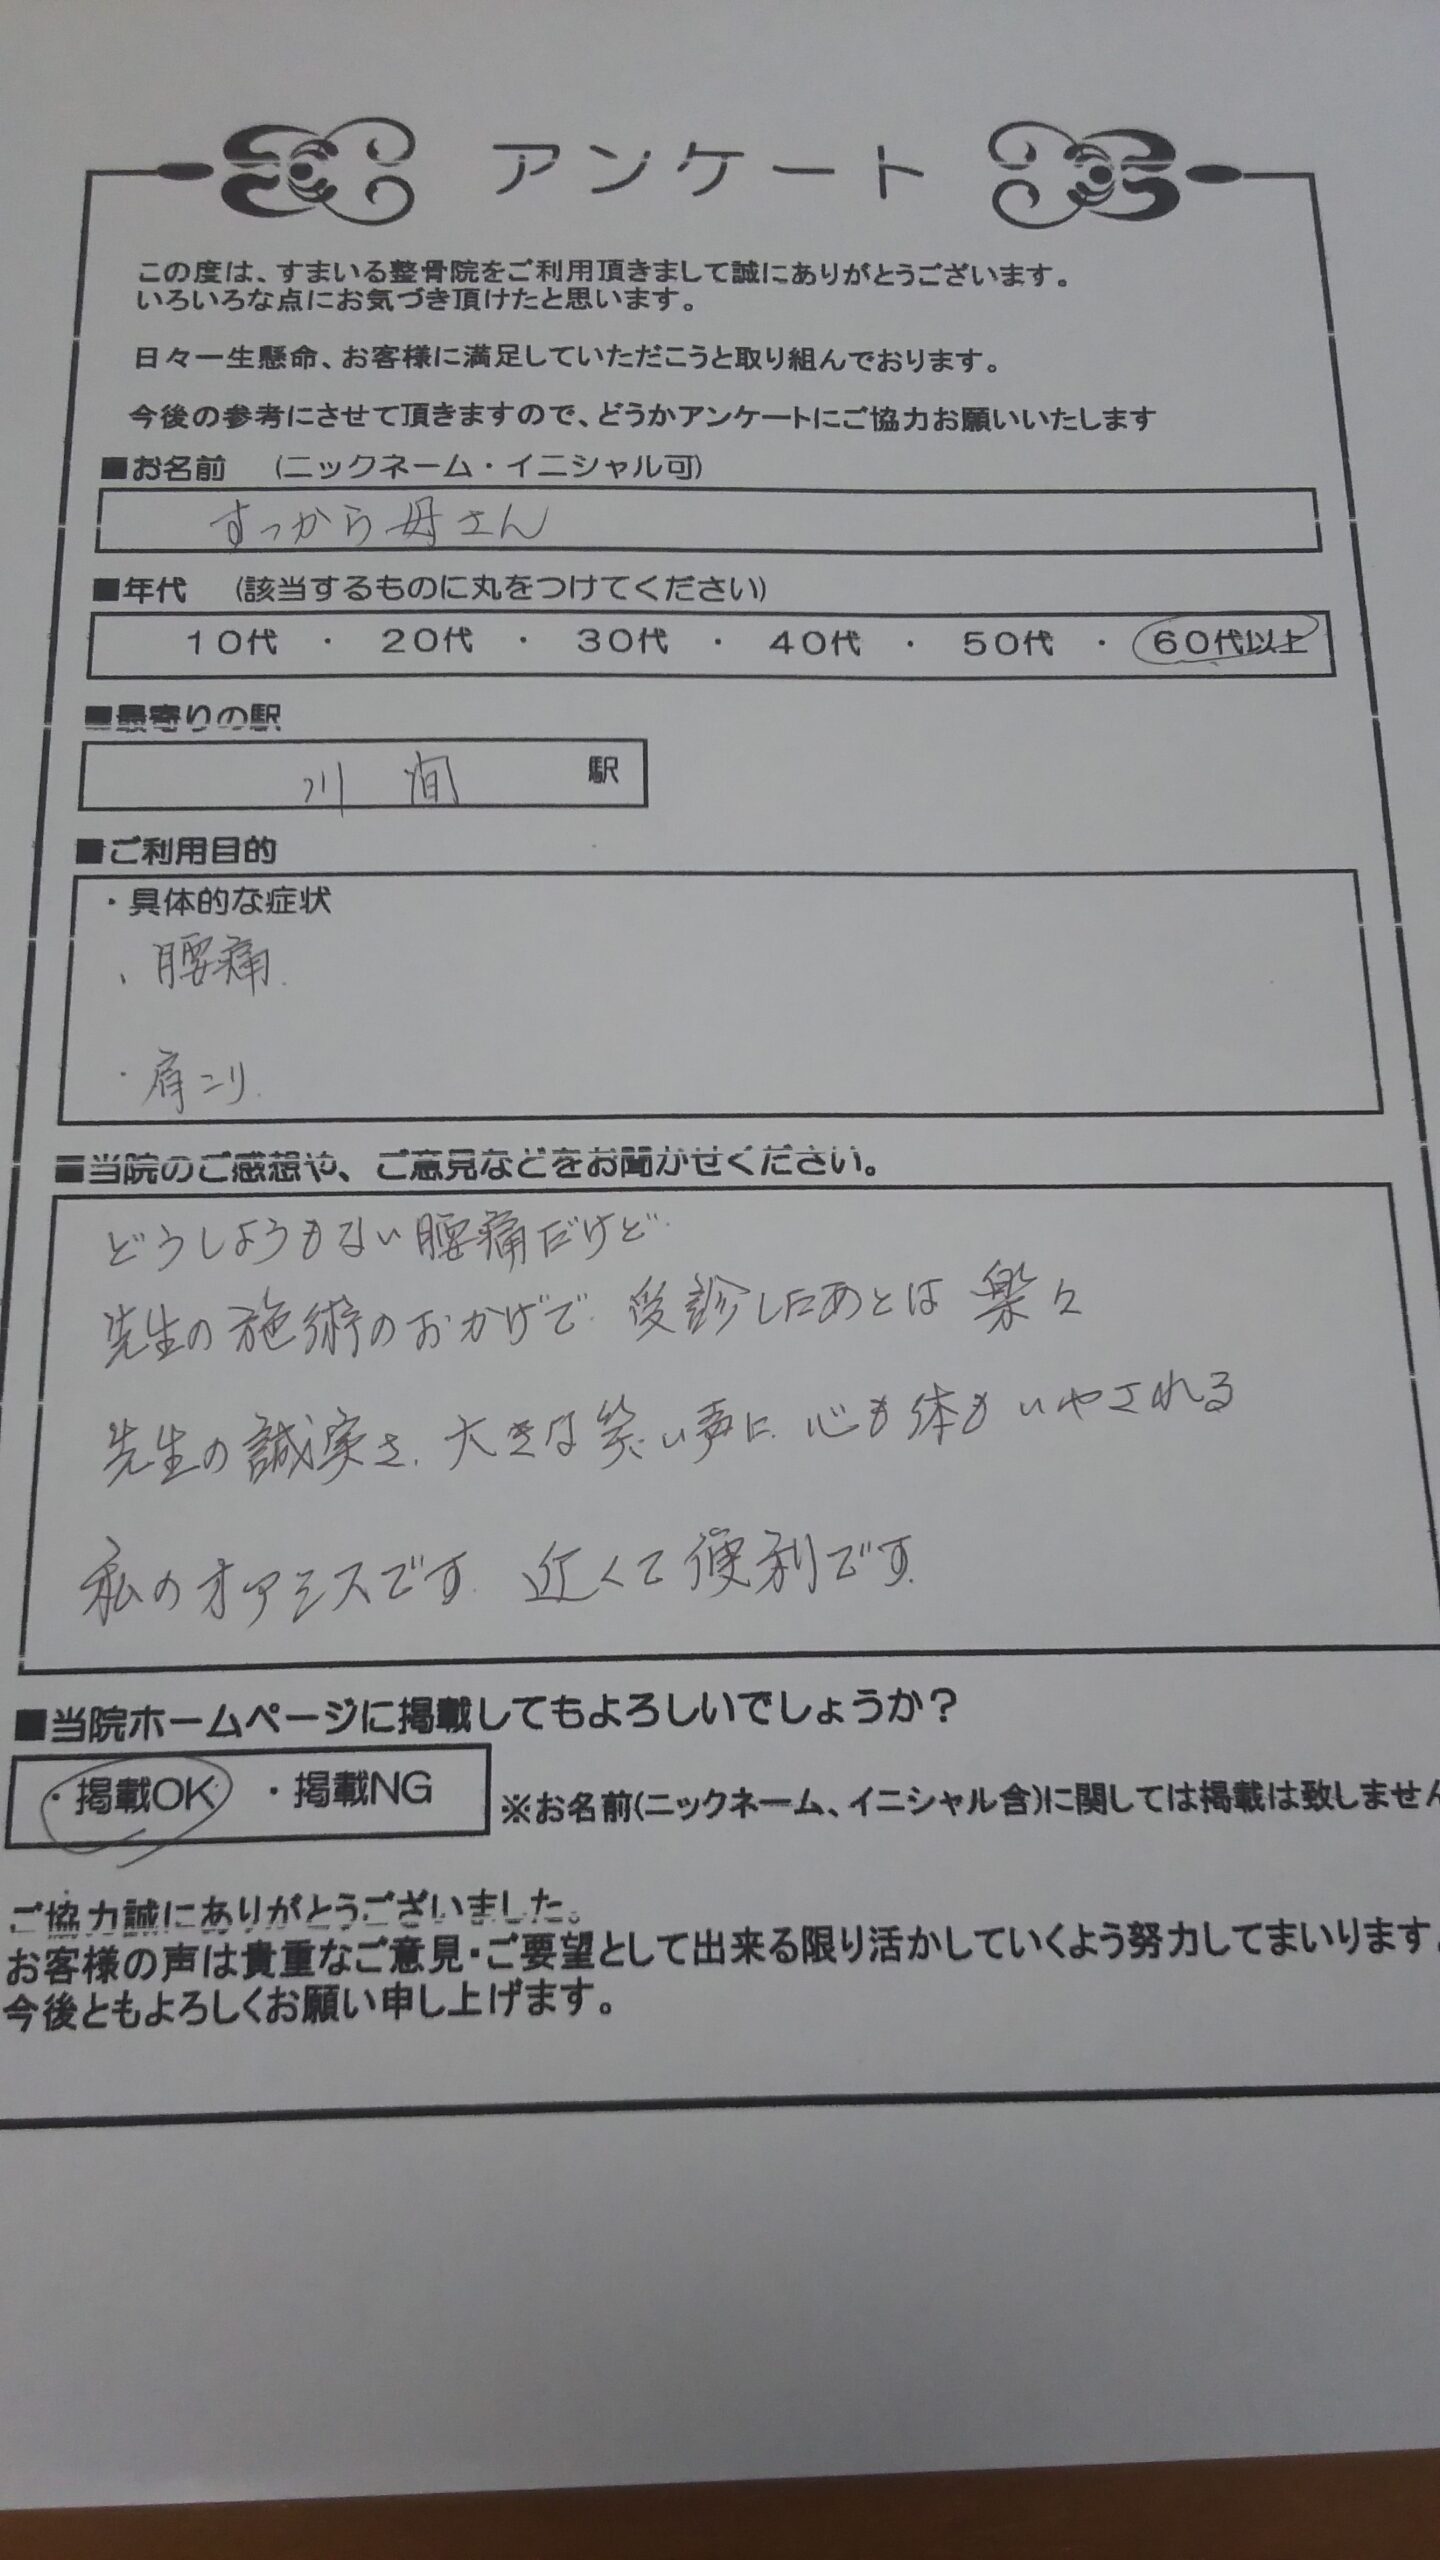 アンケート
この度は、すまいる整骨院をご利用頂きまして誠にありがとうございます。
いろいろな点にお気づき頂けたと思います。
日々一生懸命、お客様に満足していただこうと取り組んでおります。
今後の参考にさせて頂きますので、どうかアンケートにご協力お願いいたします
■お名前 (ニックネーム・イニシャル可)
すっから母さん
■年代 (該当するものに丸をつけてください)
10代 ・ 20代 ・ 30代 ・ 40代 ・ 50代 ・ 60代以上
■最寄りの駅
川間 駅
■ご利用目的
・具体的な症状
、腰痛.
・肩こり.
■当院のご感想や、ご意見などをお聞かせください。
どうしようもない腰痛だけど
先生の施術のおかげで 受診したあとは 楽々
先生の誠実さ、大きな笑い声に 心も体もいやされる
私のオアシスです. 近くて便利です.
■当院ホームページに掲載してもよろしいでしょうか？
・掲載OK ・掲載NG
※お名前(ニックネーム、イニシャル含)に関しては掲載は致しません
ご協力誠にありがとうございました。
お客様の声は貴重なご意見・ご要望として出来る限り活かしていくよう努力してまいります。
今後ともよろしくお願い申し上げます。